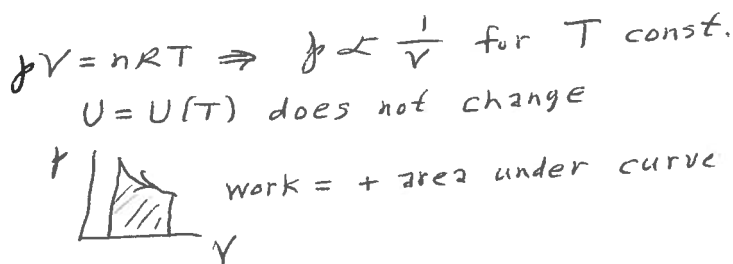 pV = nRT ⇒ p ∝ 1/V for T const.
U = U(T) does not change
p
work = + area under curve
V